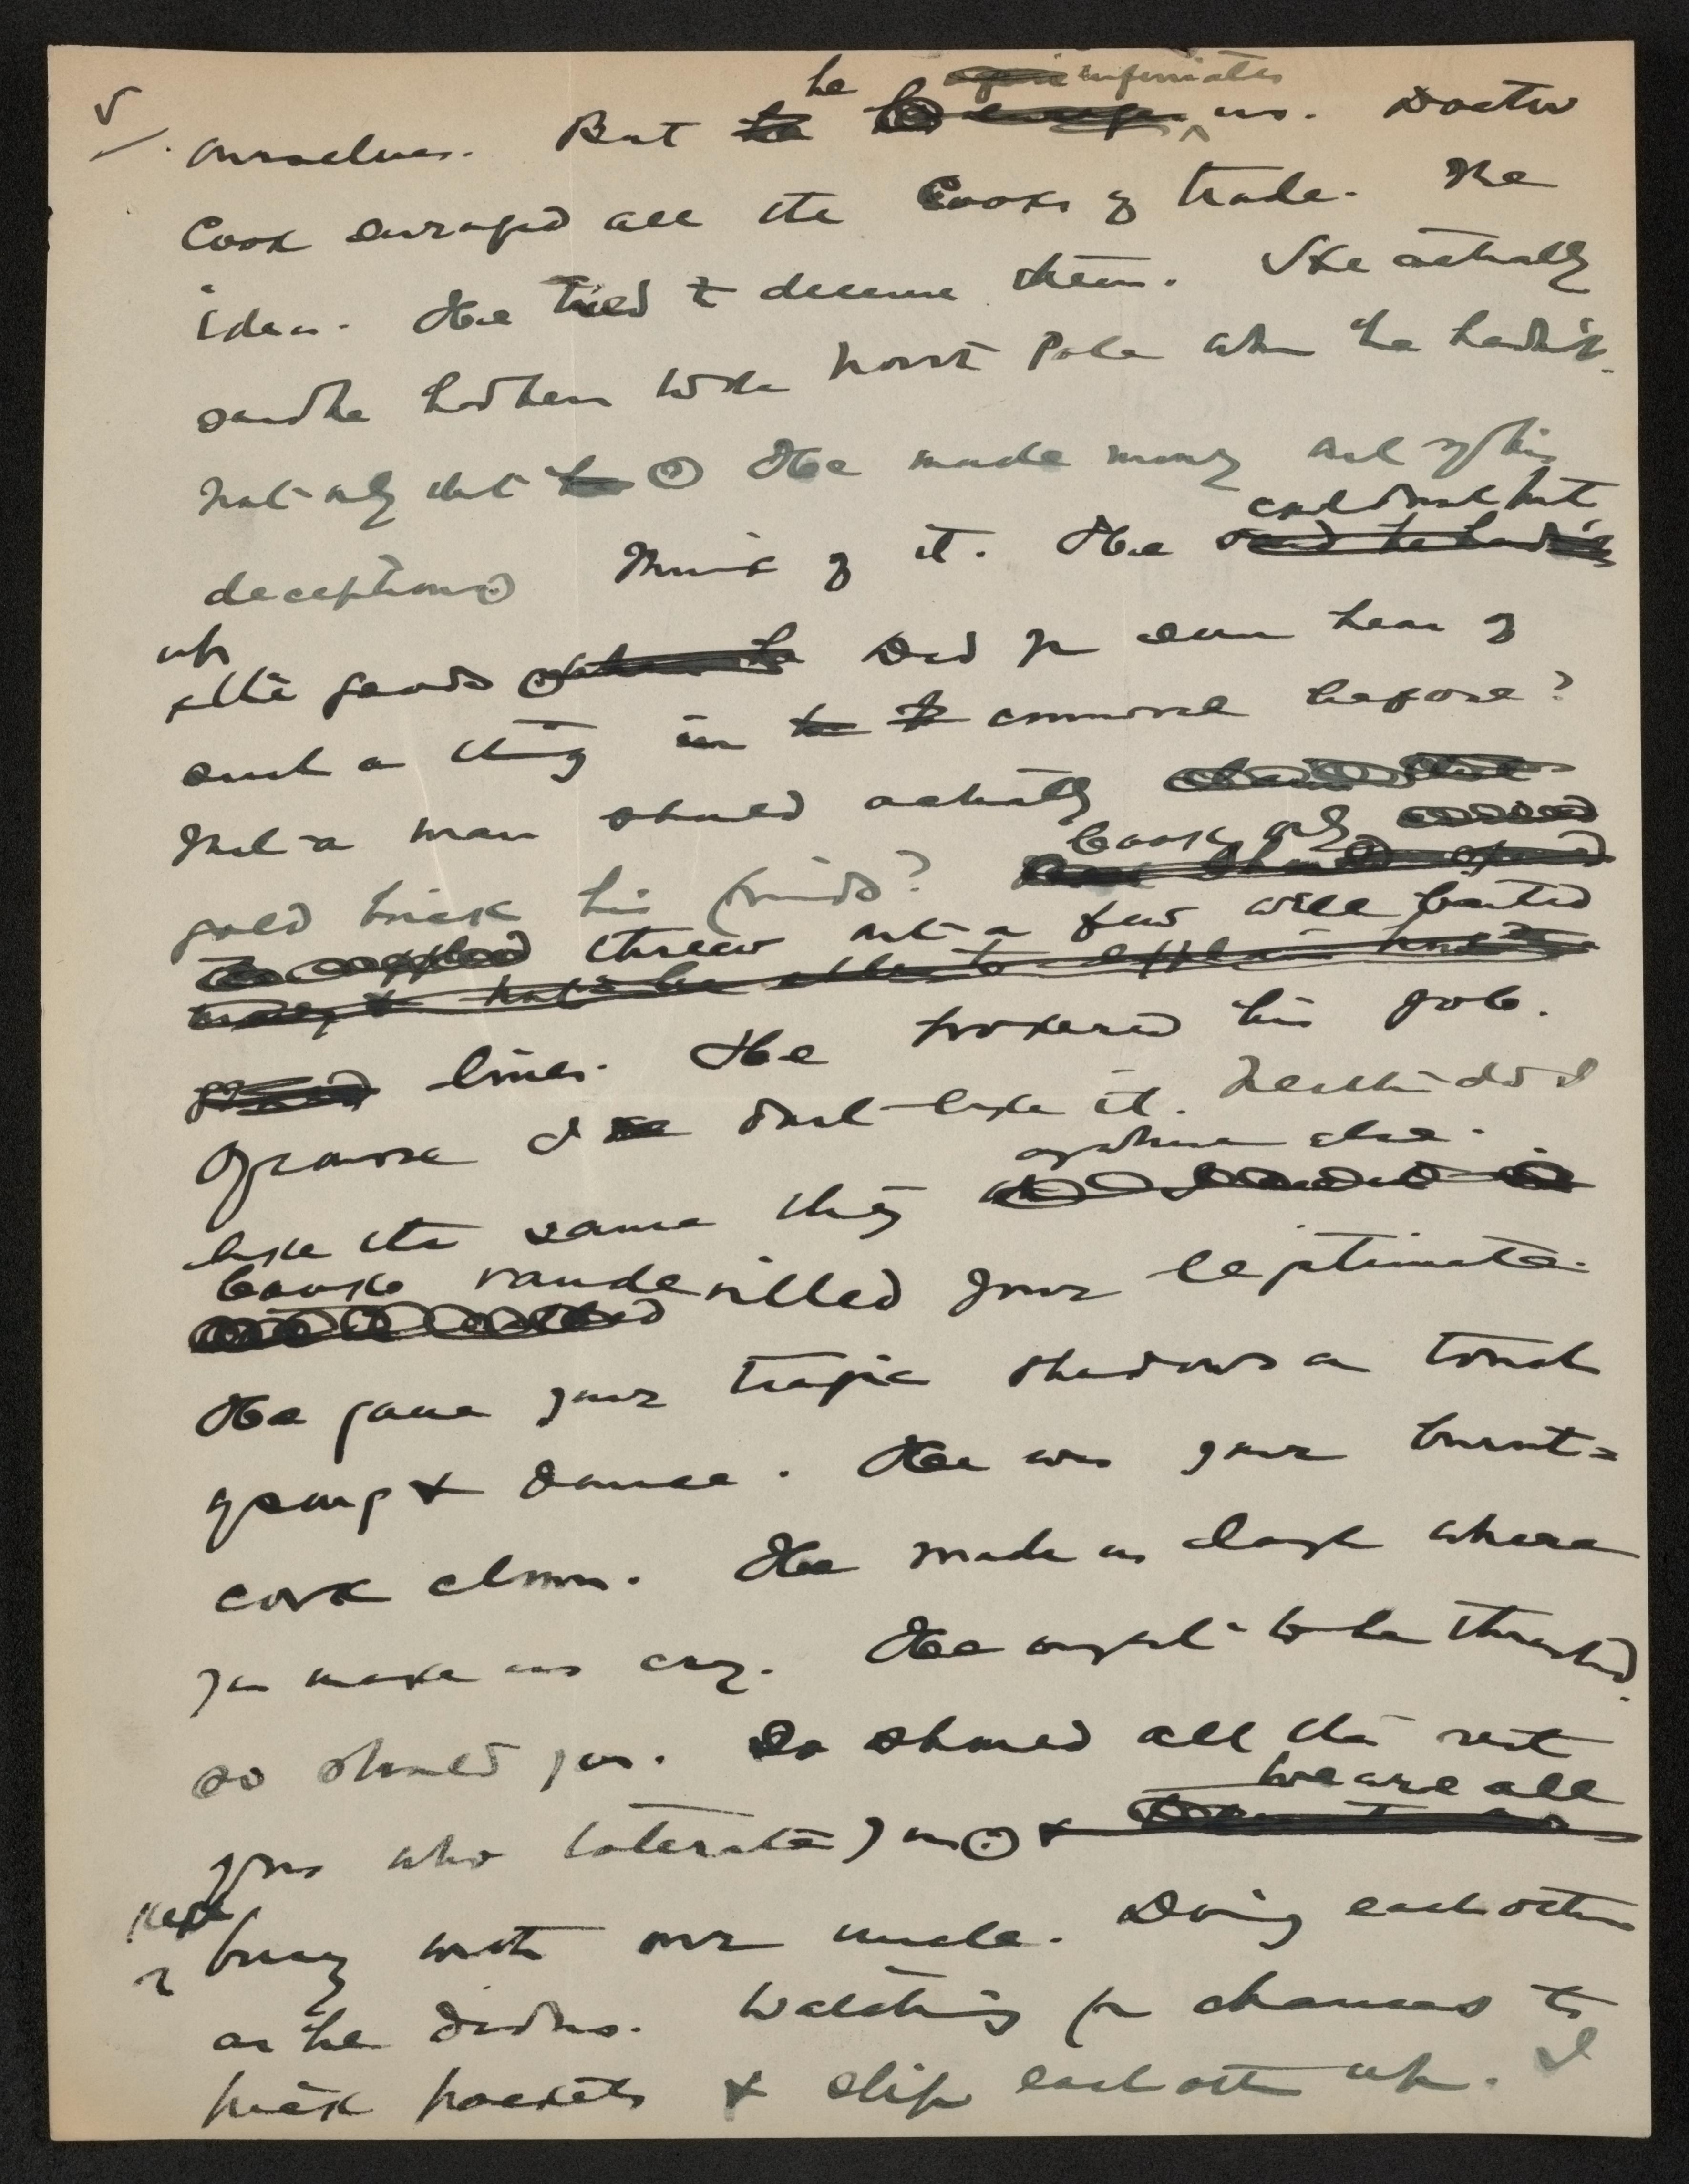 he infuriates
ourselves. But us. Doctor
Cook enraged all the Cooks of trade. The
idea. He tried to deceive them. He actually
said he had been to the North Pole when he hadnt.
Not only that He made money out of his
deceptions Think of it. He could not put
up
the goods Did you ever hear of
such a thing in commerce before?
That a man should actually
gold brick his friends? Cook only
threw out a few well baited
lines. He pokered his job.
Of course I dont like it. Neither do I
like the same thing anywhere else.
Cook vaudevilled your legitimate.
He gave your tragic shadows a touch
of song & dance. He was your burnt-
cork clown. He made us laugh where
you make us cry. He ought to be thrashed.
So should you. So should all the rest
of us who tolerate you We are all
kept
busy with our muck. Doing each other
as he did us. Watching for chances to
pick pockets & slip each other up. I